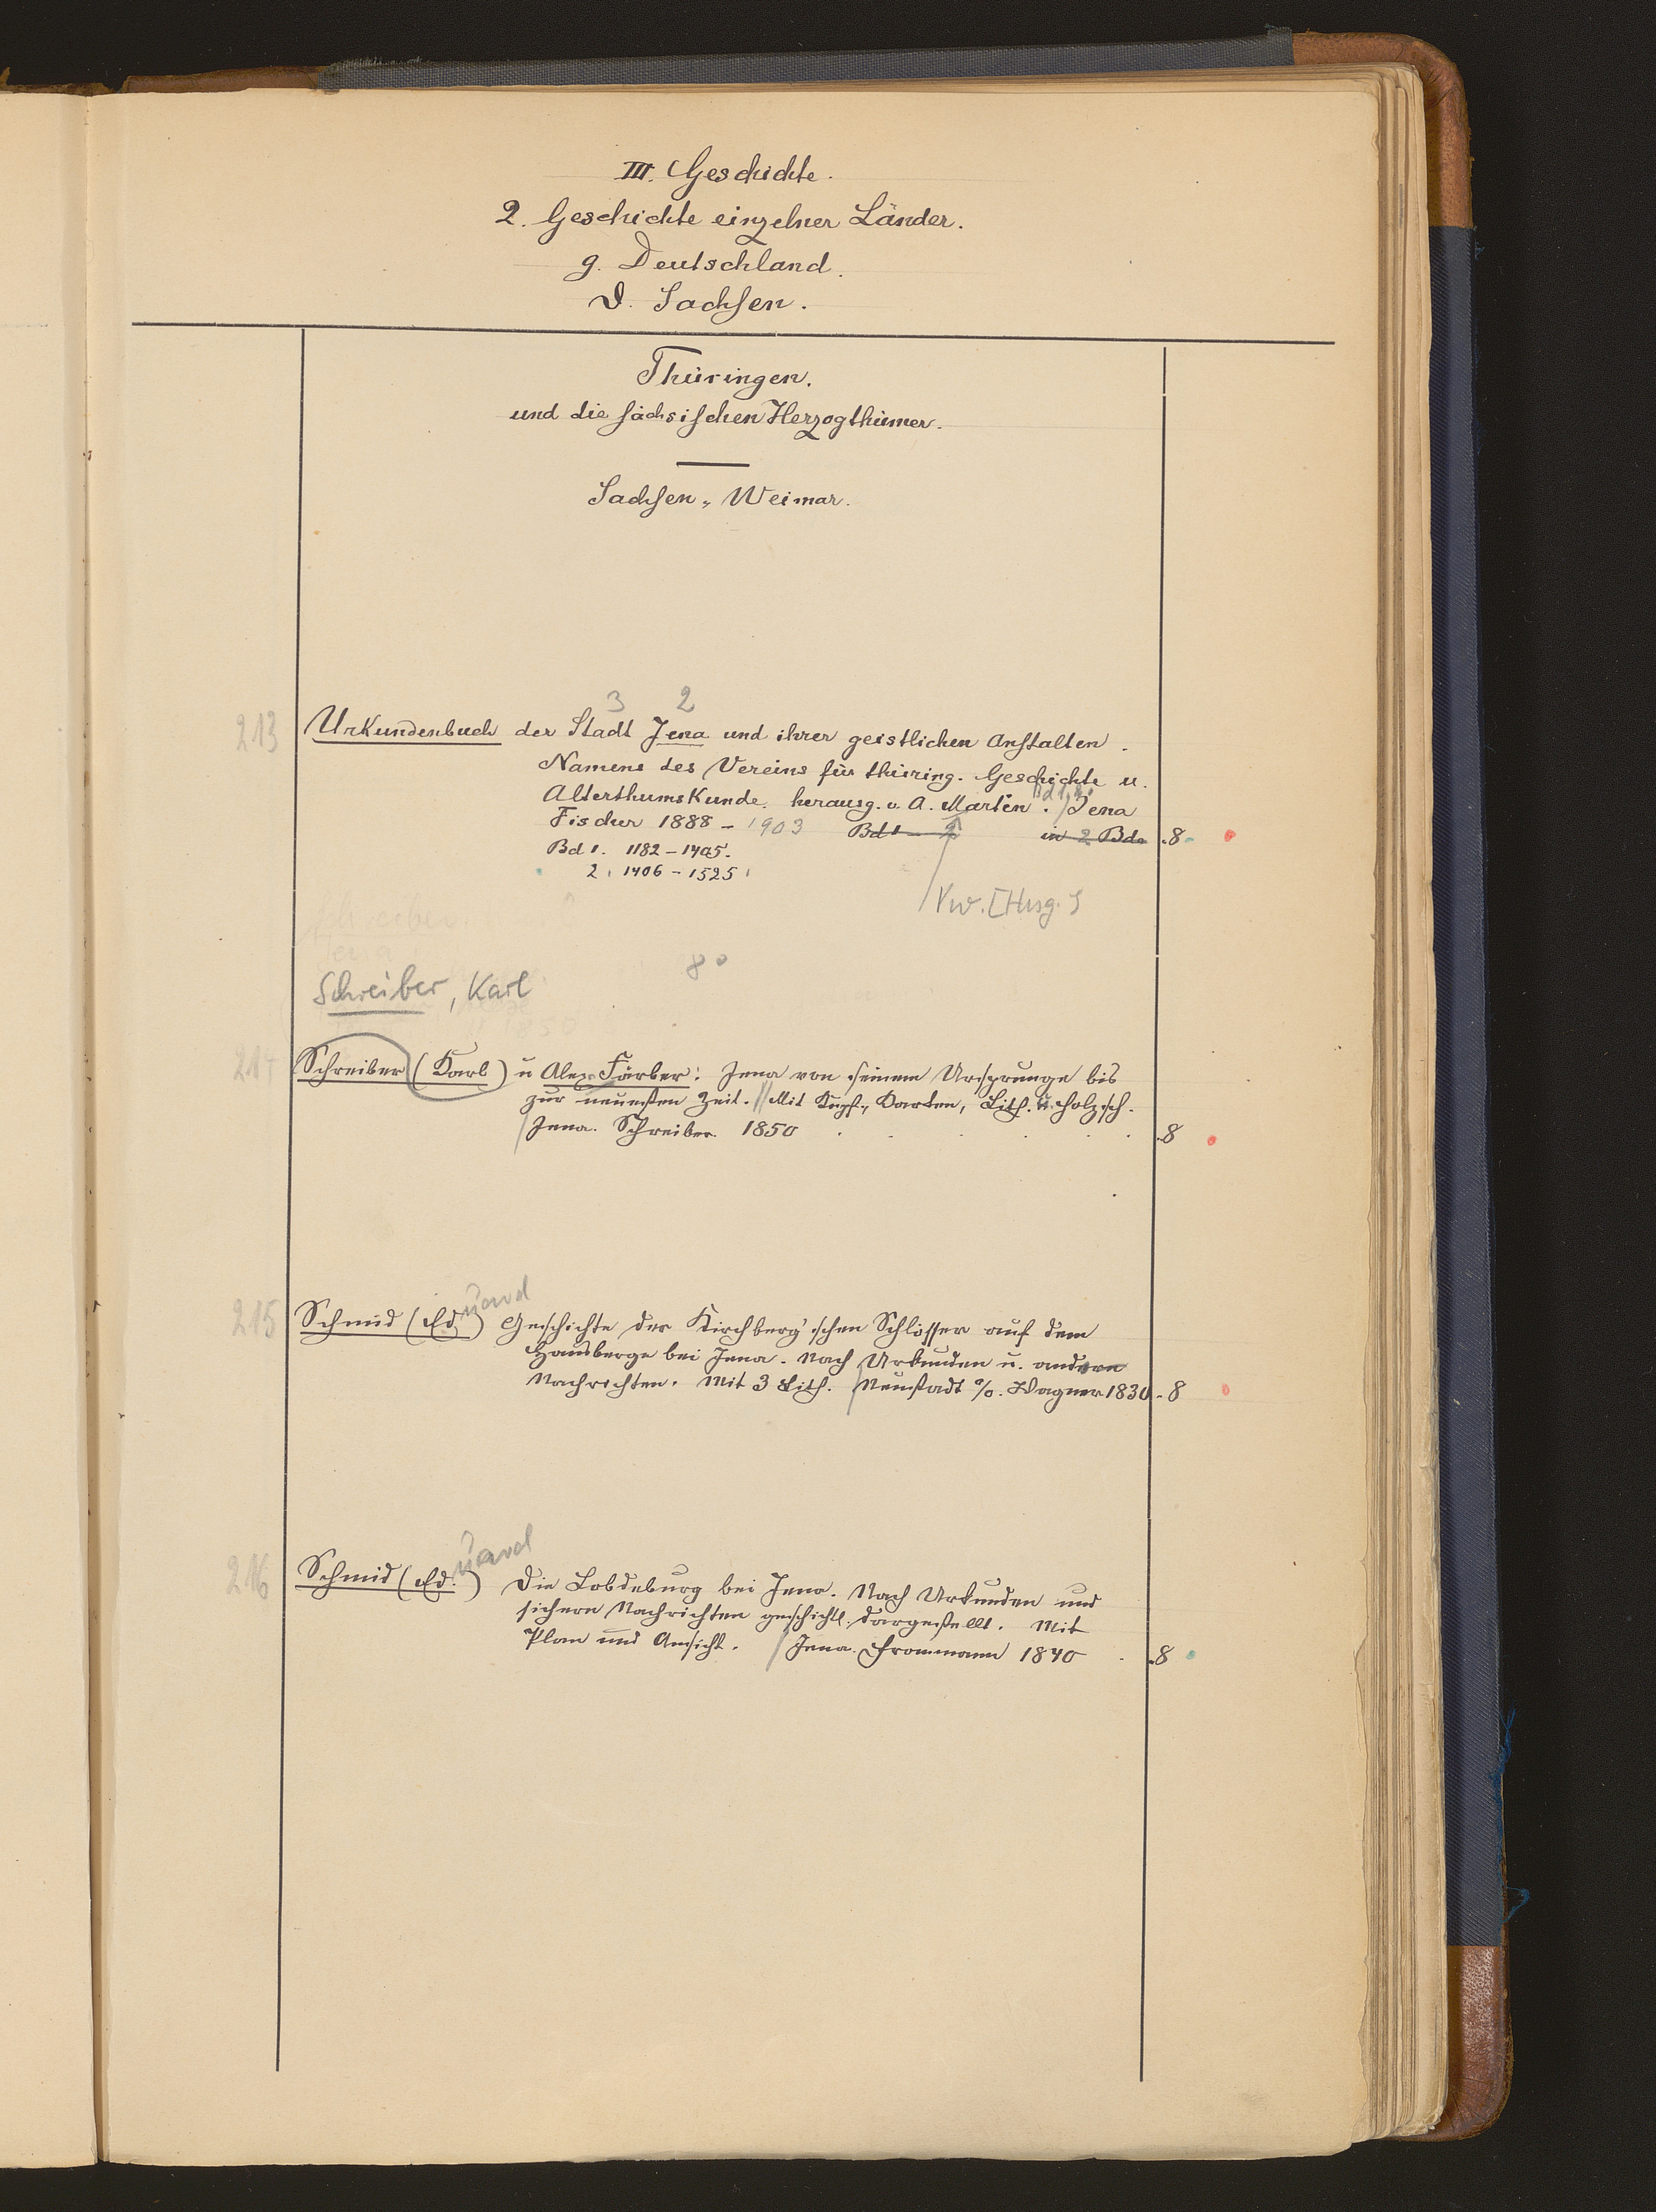 III. Geschichte.
2. Geschichte einzelner Länder.
g. Deutschland.
D. Sachsen.
Thüringen.
und die sächsischen Herzogthümer.
Sachsen-Weimar.
3 2
213 Urkundenbuch der Stadt Jena und ihrer geistlichen Anstalten.
Namens des Vereins für thüring. Geschichte u.
Alterthumskunde. herausg. v. A. Martin. Bd 1.2. / Jena
Fischer 1888 - 1903 Bd 1 - 2 in 2 Bde .8
Bd 1. 1182 - 1405.
2. 1406 - 1525.
Vw. [Hrsg.]
8°
Schreiber, Karl
214 Schreiber (Karl) u Alex. Färber: Jena von seinem Ursprunge bis
zur neuesten Zeit. // Mit Kupf., Karten, Lith. u. Holzsch.
/ Jena. Schreiber 1850 . . . . . .8
215 Schmid (Ed.uard) Geschichte der Kirchberg'schen Schlösser auf dem
Hausberge bei Jena. Nach Urkunden u. andern
Nachrichten. Mit 3 Lith. / Neustadt a/O. Wagner 1830 .8
216 Schmid (Ed.uard) Die Lobdeburg bei Jena. Nach Urkunden und
sichern Nachrichten geschichtl. dargestellt. Mit
Plan und Ansicht. / Jena. Frommann 1840 . .8